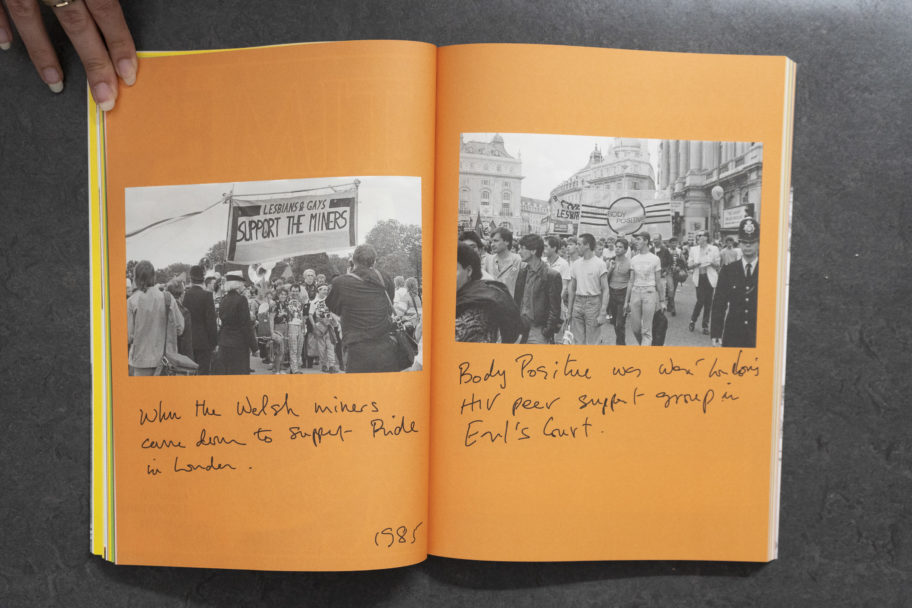 LESBIANS & GAYS
SUPPORT THE MINERS
When the Welsh miners
came down to support Pride
in London.
1985
LESBIA
BODY
POSITIVE
Body Positive was London's
HIV peer support group in
Earl's Court.